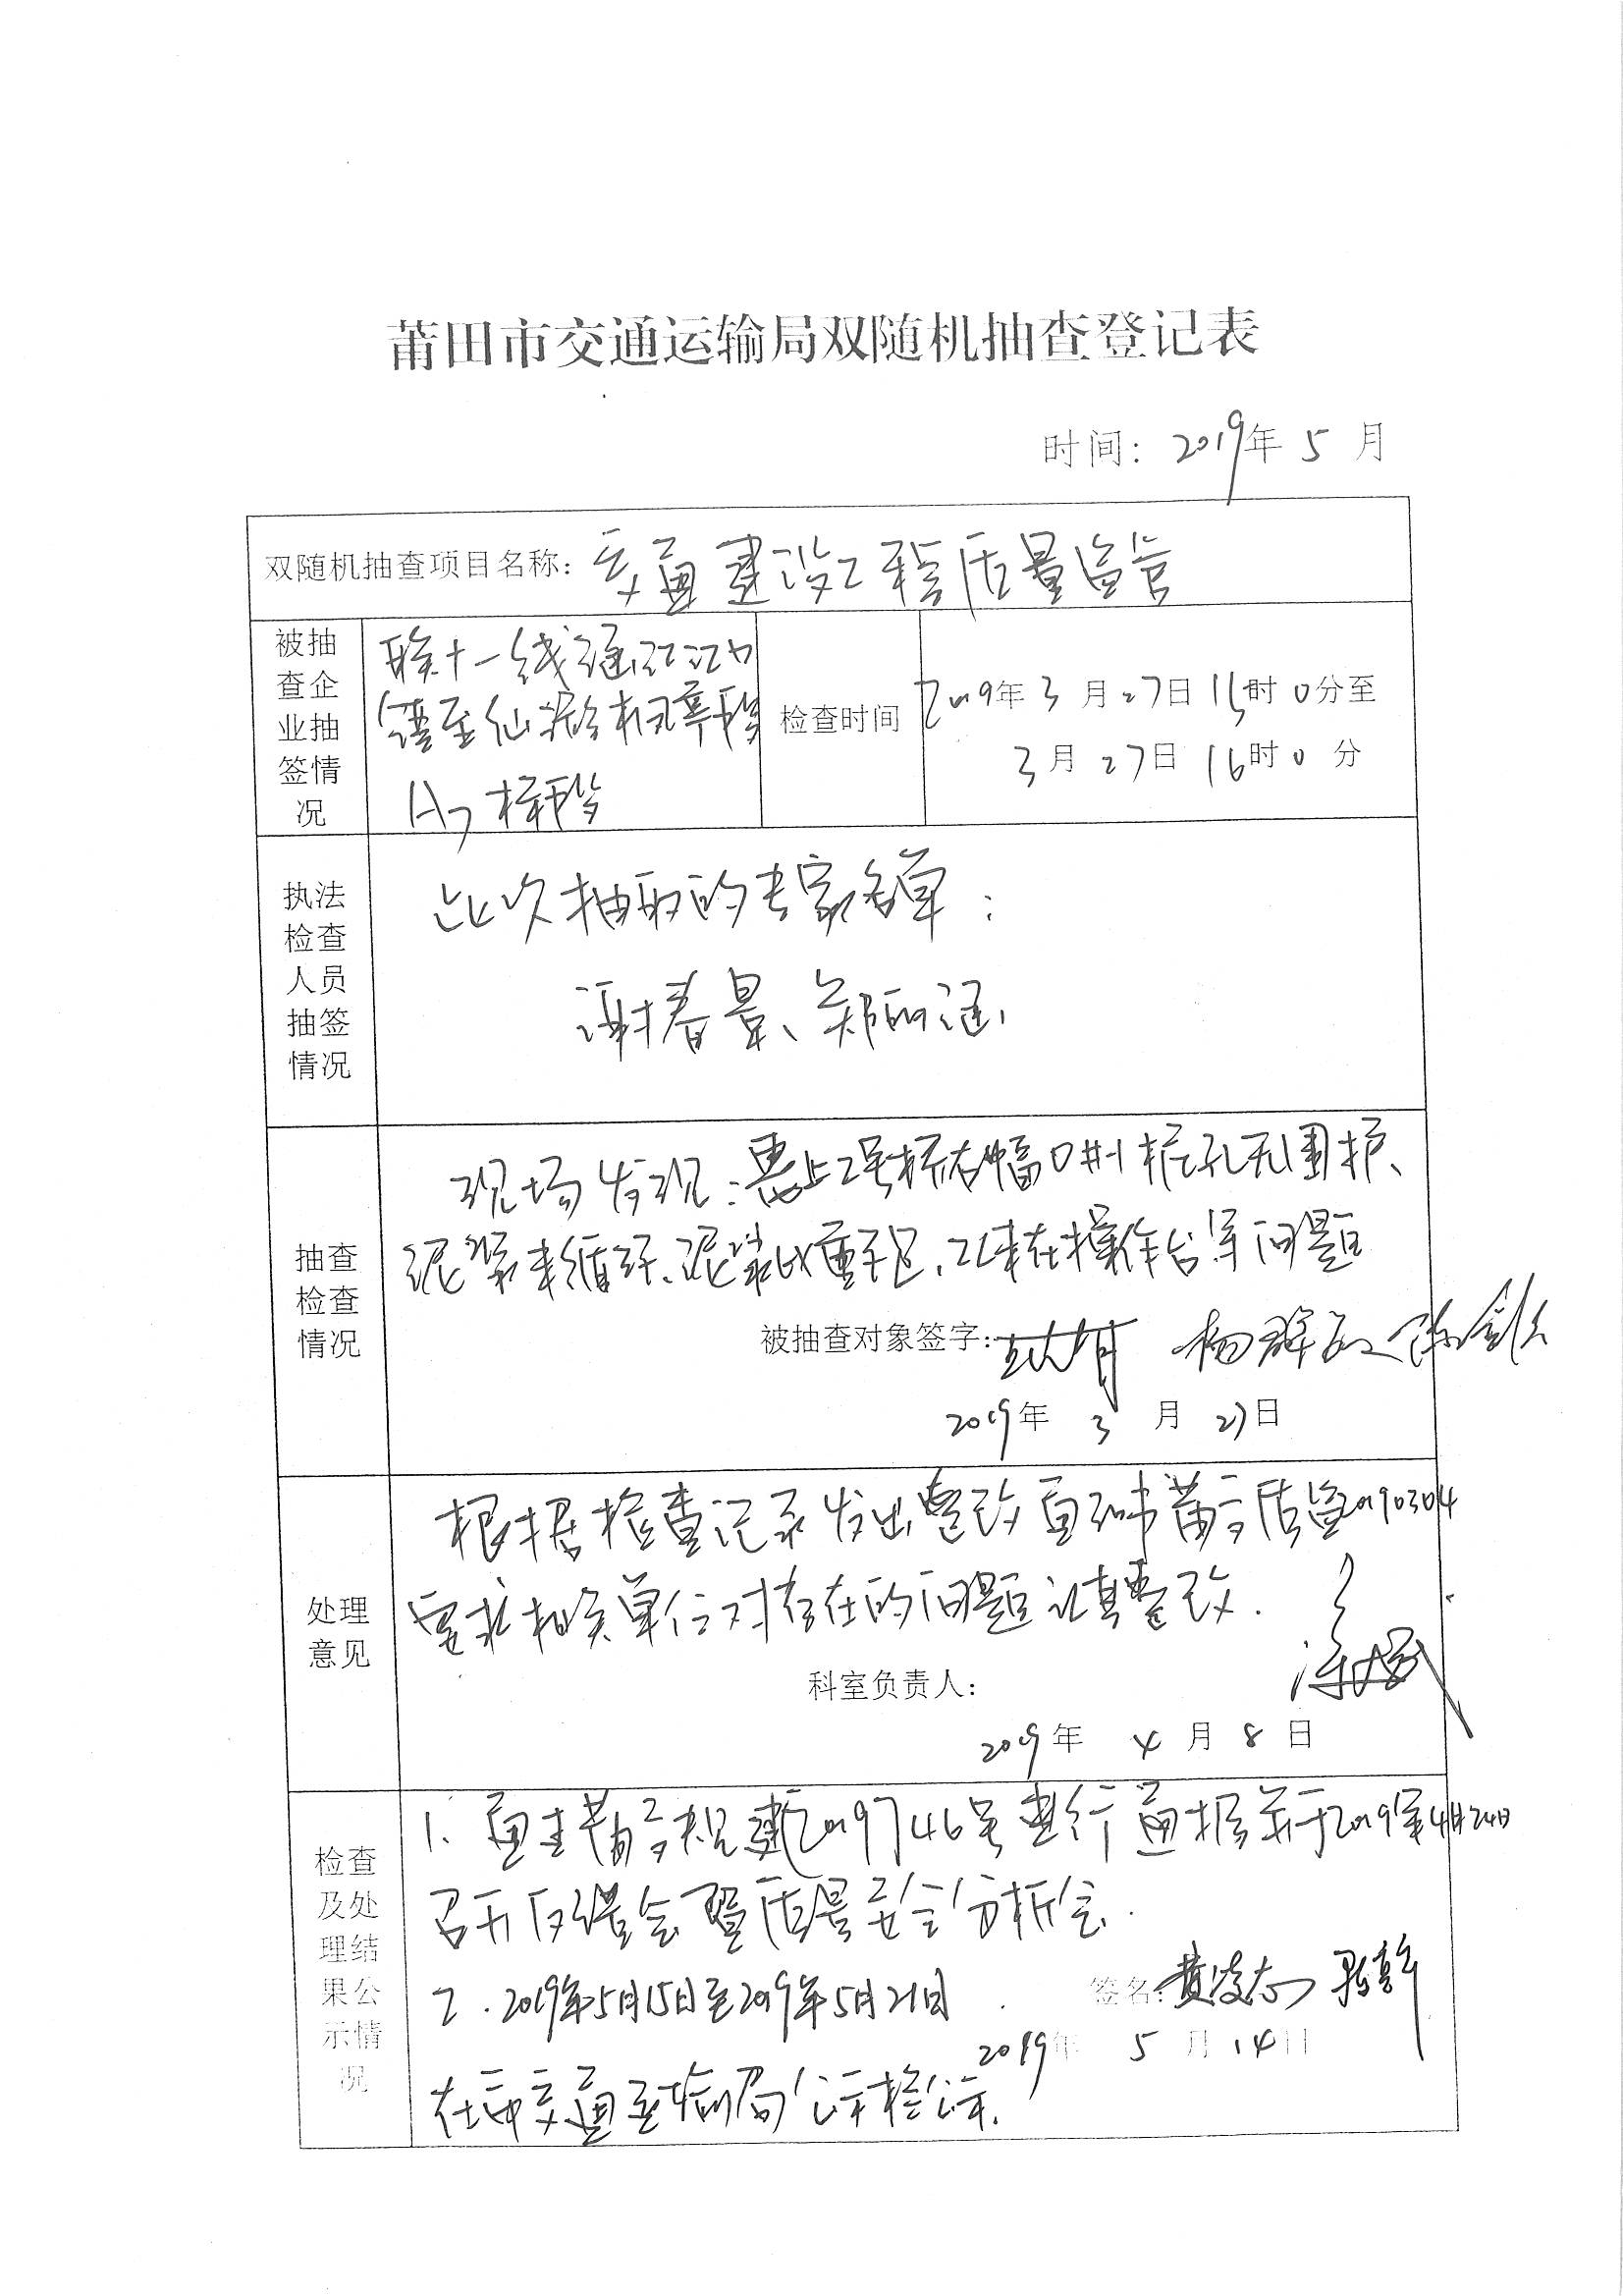 莆田市交通运输局双随机抽查登记表
时间：2019年5月
双随机抽查项目名称：交通建设工程质量监管
被抽查企业抽签情况
联十一线涵江江口
镇至仙游枫亭段
A7标段
检查时间
2019年3月27日15时0分至
3月27日16时0分
执法检查人员抽签情况
此次抽取的专家名单：
谢春景、郑丽涵、
抽查检查情况
现场发现：惠上2号桥右幅0#-1桩孔无围护、
泥浆未循环、泥浆比重不足、未在操作台等问题
被抽查对象签字：
2019年3月27日
处理意见
根据检查记录发出整改通知书莆交质监20190304
要求相关单位对存在的问题认真整改.
科室负责人：
2019年4月8日
检查及处理结果公示情况
1、通过莆交规建[2019]46号进行通报并于2019年4月24日
召开反馈会暨质量安全分析会.
2.2019年5月15日至2019年5月21日
签名：
2019年5月14日
在市交通运输局公示栏公示.